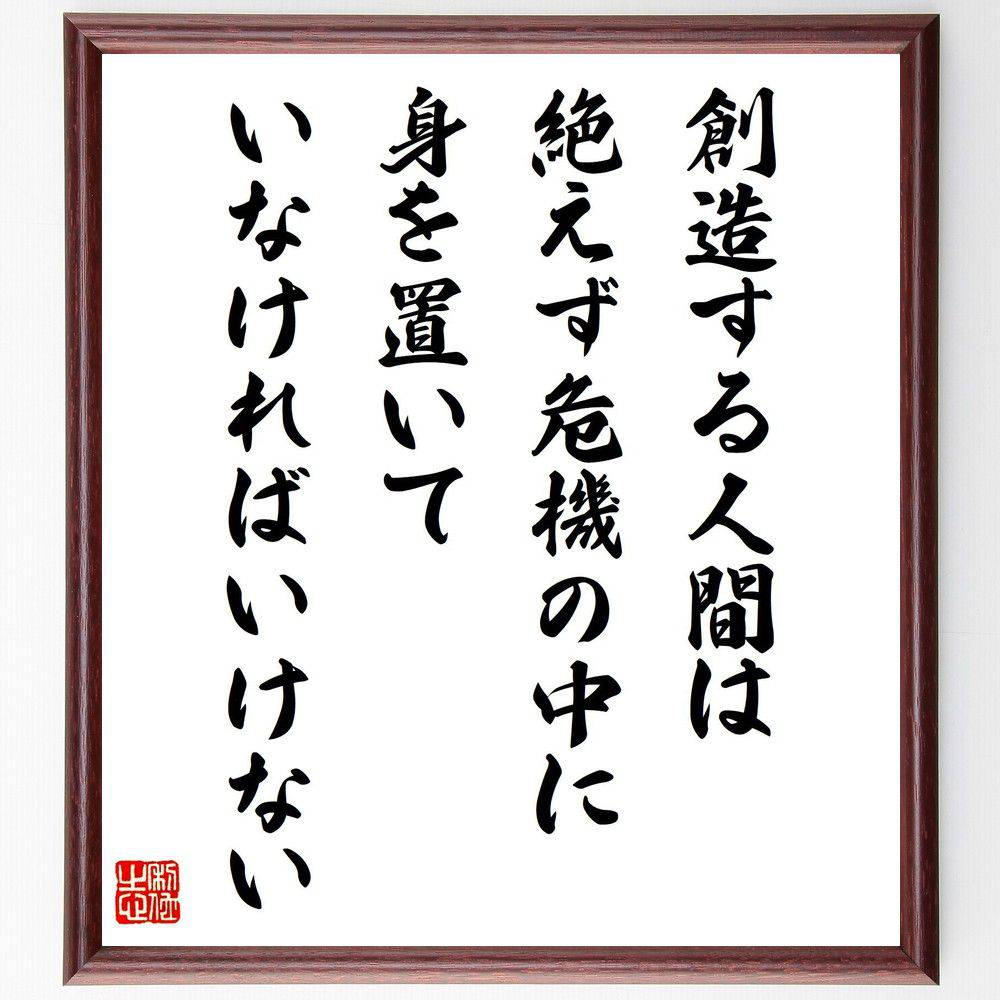 創造する人間は
絶えず危機の中に
身を置いて
いなければいけない